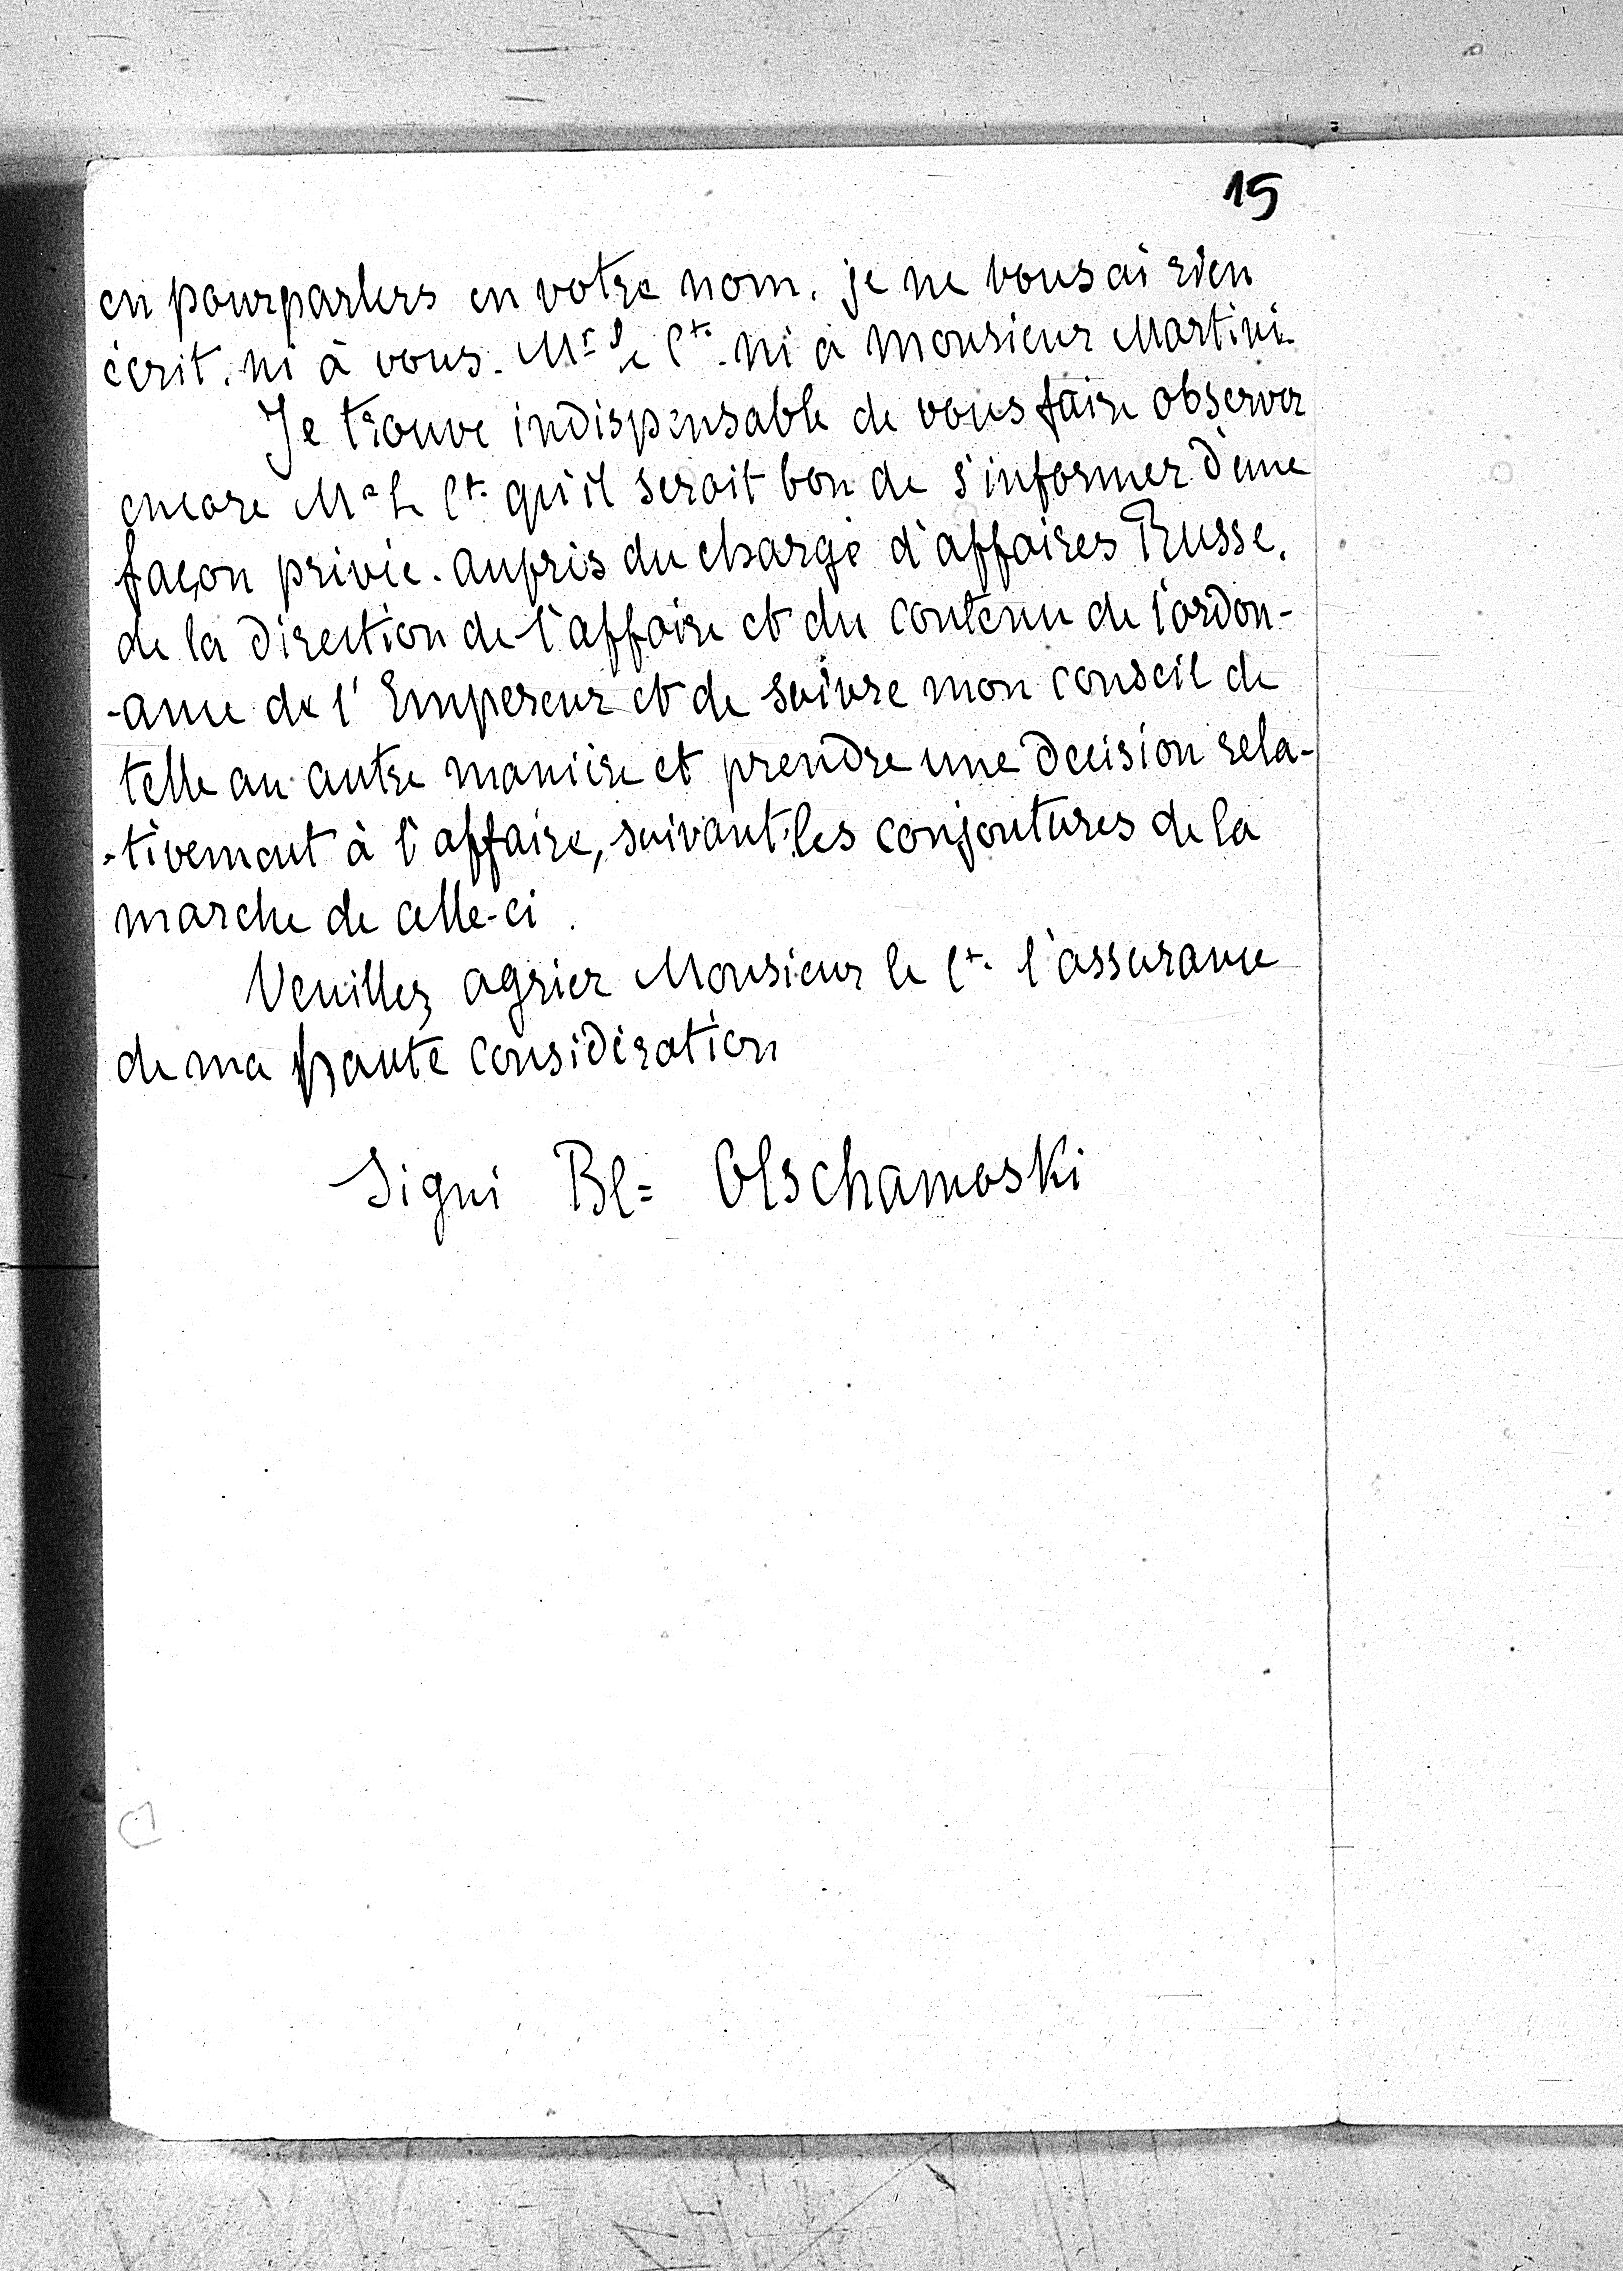 15
en pourparlers en votre nom. je ne vous ai rien
écrit. ni à vous. Mr le Ct. ni à monsieur Martini
Je trouve indispensable de vous faire observer
encore Mr le Ct. qu'il serait bon de s'informer d'une
façon privée. auprès du chargé d'affaires Russe.
de la direction de l'affaire et du contenu de l'ordon-
-ance de l'Empereur et de suivre mon conseil de
telle au autre manière et prendre une decision rela-
-tivement à l'affaire, suivant les conjontures de la
marche de celle-ci.
Veuillez agréer Monsieur le Ct. l'assurance
de ma haute considération
Signé Bl= Olschamoski